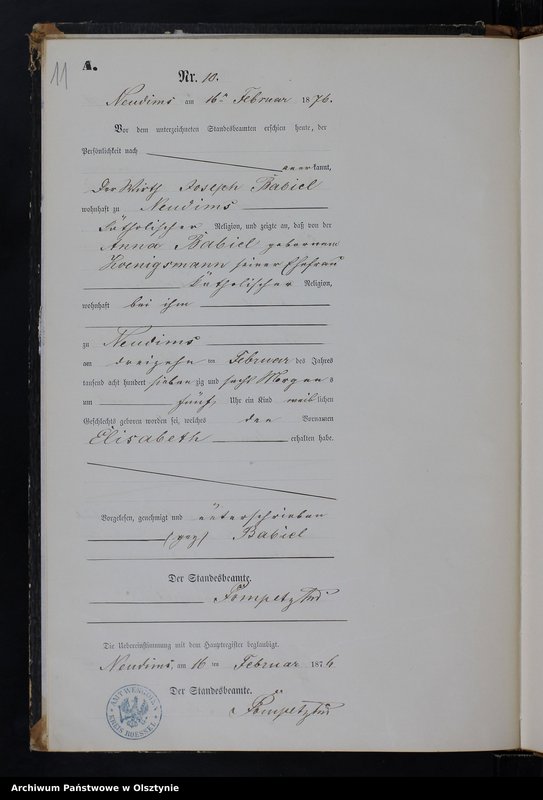 11
A.
Nr. 10.
Neudims am 16ten Februar 1876.
Vor dem unterzeichneten Standesbeamten erschien heute, der
Persönlichkeit nach
anerkannt,
der Wirth Joseph Babiel
wohnhaft zu Neudims
katholischer Religion, und zeigte an, daß von der
Anna Babiel geborenen
Koenigsmann seiner Ehefrau
katholischer Religion,
wohnhaft bei ihm
zu Neudims
am dreizehn ten Februar des Jahres
tausend acht hundert sieben zig und sechs Morgens
um fünf Uhr ein Kind weiblichen
Geschlechts geboren worden sei, welches den Vornamen
Elisabeth erhalten habe.
Vorgelesen, genehmigt und unterschrieben
(gez) Babiel
Der Standesbeamte.
Die Uebereinstimmung mit dem Hauptregister beglaubigt.
Neudims, am 16 ten Februar 1876
Der Standesbeamte.
AMT WENGOYEN
KREIS ROESSEL
Archiwum Państwowe w Olsztynie